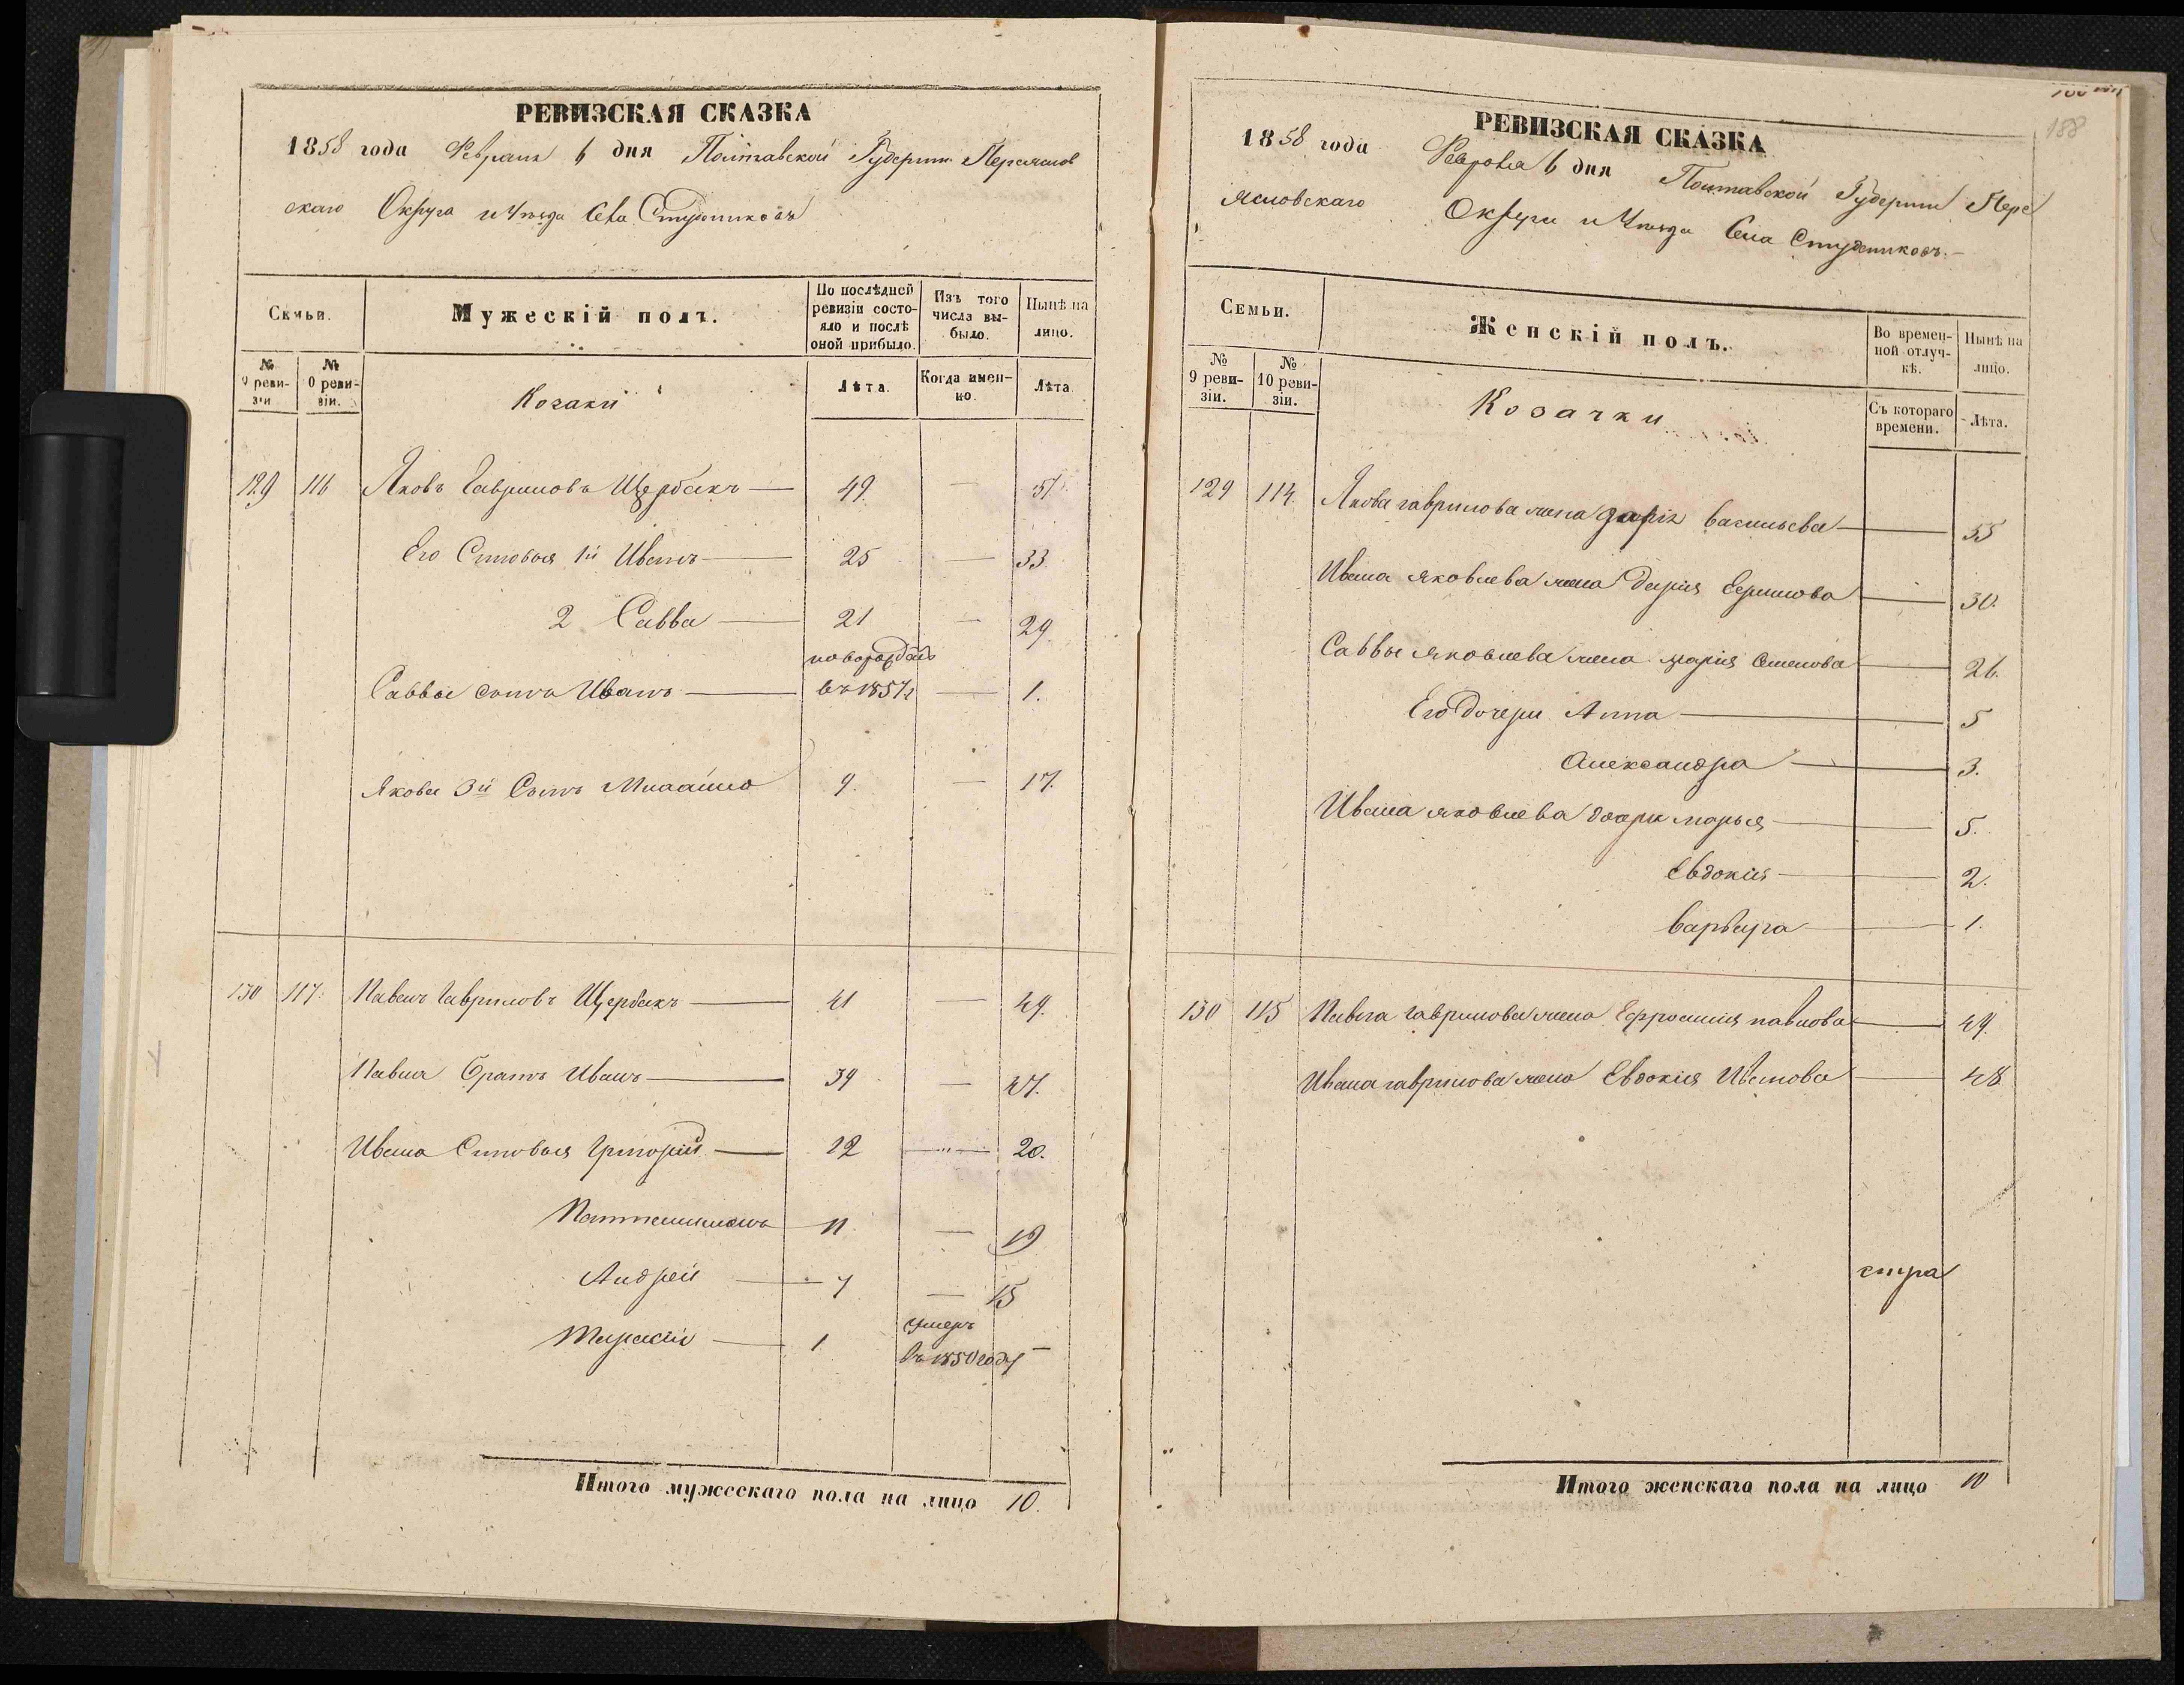 РЕВИЗСКАЯ СКАЗКА
1858 года Февраля 6 дня Полтавской Губерни Переяслов
скаго Округа и Уѣзда Села Студениковъ
Семьи.
Мужескій полъ.
По послѣдней ревизіи состояло и послѣ оной прибыло.
Изъ того числа выбыло.
Нынѣ на лицо.
№ 9 ревизіи
№ 10 ревизіи.
Козаки
Лѣта.
Когда именно.
Лѣта
129 116 Яковъ Гавриловъ Щербакъ — 49. — 57.
Его Сыновья 1й Иванъ — 25 — 33.
2 Савва — 21 — 29.
новорожден
Саввы сынъ Иванъ — въ 1857 г — 1.
Якова 3й Сынъ 9. — 17.
130 117. Павелъ Гавриловъ Щербакъ — 41 — 49.
Павла братъ Иванъ — 39 — 47.
Ивана Сыновья Григорій — 12 — 20.
Пантелимонъ 11 — 19
Андрей — 7 — 15
умеръ
Тарасій — 1 въ 1850 году —
Итого мужескаго пола на лицо 10.
188
РЕВИЗСКАЯ СКАЗКА
1858 года Февраля 6 дня Полтавской Губернии Пере
ясловскаго Округа и Уѣзда Села Студениковъ.
Семьи.
Женскій полъ.
Во временной отлучкѣ.
Нынѣ на лицо.
№ 9 ревизіи.
№ 10 ревизіи.
Козачки
Съ котораго времени.
Лѣта.
129 114. Якова гаврилова жена дарія васильева — 55
Ивана яковлева жена дарія — 30.
Саввы яковлева жена марія семенова — 26.
Его дочери Анна — 5
Александра — 3.
Ивана яковлева дочери марья — 5.
Евдокія — 2.
варвара — 1.
130 115 Павла гаврилова жена Ефросинія павлова — 49.
Ивана гаврилова жена Евдокія Иванова — 48
Итого женскаго пола на лицо 10